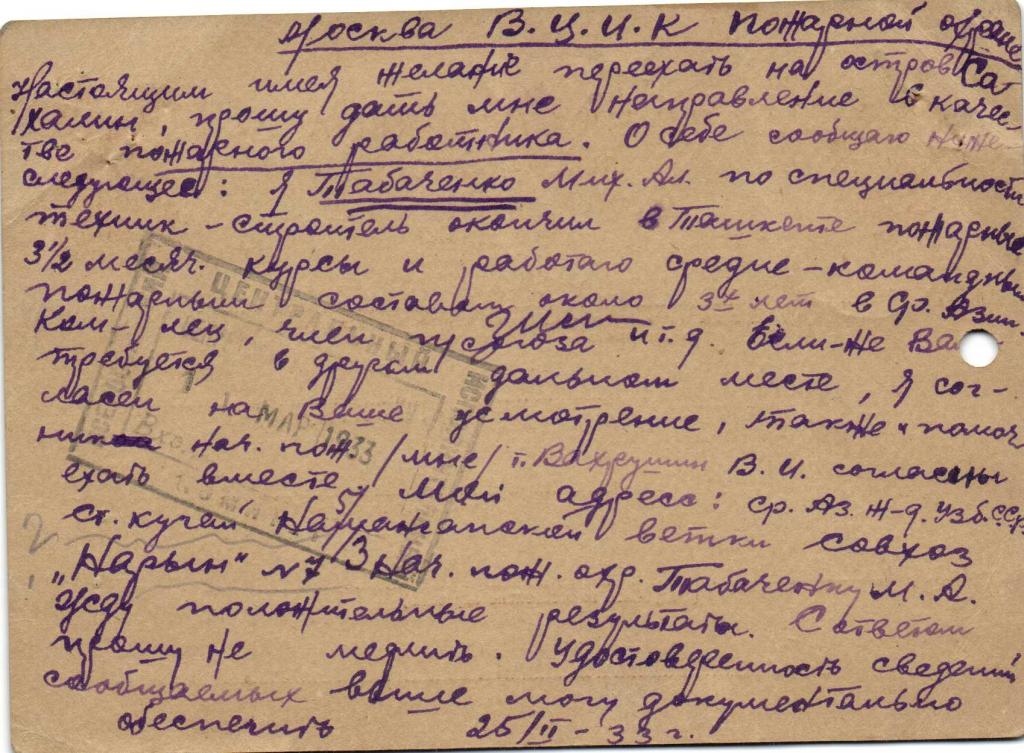 Москва В.Ц.И.К пожарной охране
Настоящим имея желание переехать на остров Са-
халин, прошу дать мне направление в качес-
тве пожарного работника. О себе сообщаю ниже-
следующее: я Табаченко Мих. Ал. по специальности
техник-строитель окончил в Ташкенте пожарные
3 1/2 месяч. курсы и работаю средне-командным
пожарным составом около 3х лет в Ср. Азии
Ком-лец, член профсоюза и т.д. Если-же Вам
требуется в другом дальном месте, я сог-
ласен на Ваше усмотрение, также и помощ
ник нач. пож. /мне/ т. Вахрушин В.И. согласны
ехать вместе. Мой адресс: Ср. Аз. ж-д. Узб. ССР
ст. Кучай Наманганской ветки совхоз
„Нарын" №7/3 Нач. пож. охр. Табаченку М.А.
Жду положительные результаты. С ответом
прошу не медлить. Удостоверенность сведений
сообщаемых выше могу документально
обеспечить 25/II-33 г.
ЦЕНТРАЛЬНЫЙ
МАР 1933
Вх